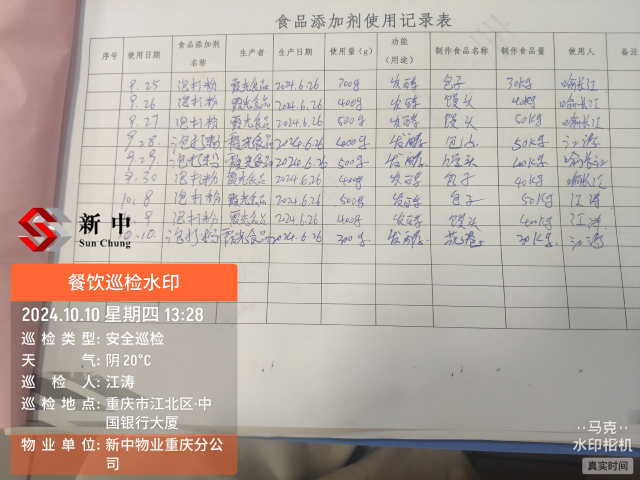 食品添加剂使用记录表
序号 使用日期 食品添加剂名称 生产者 生产日期 使用量(g) 功能(用途) 制作食品名称 制作食品量 使用人 备注
9.25 泡打粉 霞光食品 2024.6.26 300g 发酵 包子 30Kg 喻长江
9.26 泡打粉 霞光食品 2024.6.26 400g 发酵 馒头 40Kg 喻长江
9.27 泡打粉 霞光食品 2024.6.26 500g 发酵 馒头 50Kg 喻长江
9.28 泡打粉 霞光食品 2024.6.26 400g 发酵 包子 50Kg 江涛
9.29 泡打粉 霞光食品 2024.6.26 500g 发酵 馒头 喻长江
9.30 泡打粉 霞光食品 2024.6.26 400g 发酵 包子 40Kg 喻长江
10.8 泡打粉 霞光食品 2024.6.26 500g 发酵 包子 50Kg 江涛
9 泡打粉 霞光食品 2024.6.26 400g 发酵 馒头 40Kg 江涛
10.10 泡打粉 霞光食品 2024.6.26 300g 发酵 花卷 30Kg 江涛
新中
Sun Chung
餐饮巡检水印
2024.10.10 星期四 13:28
巡检类型: 安全巡检
天气: 阴 20°C
巡检人: 江涛
巡检地点: 重庆市江北区·中
国银行大厦
物业单位: 新中物业重庆分公
司
马克
水印相机
真实时间